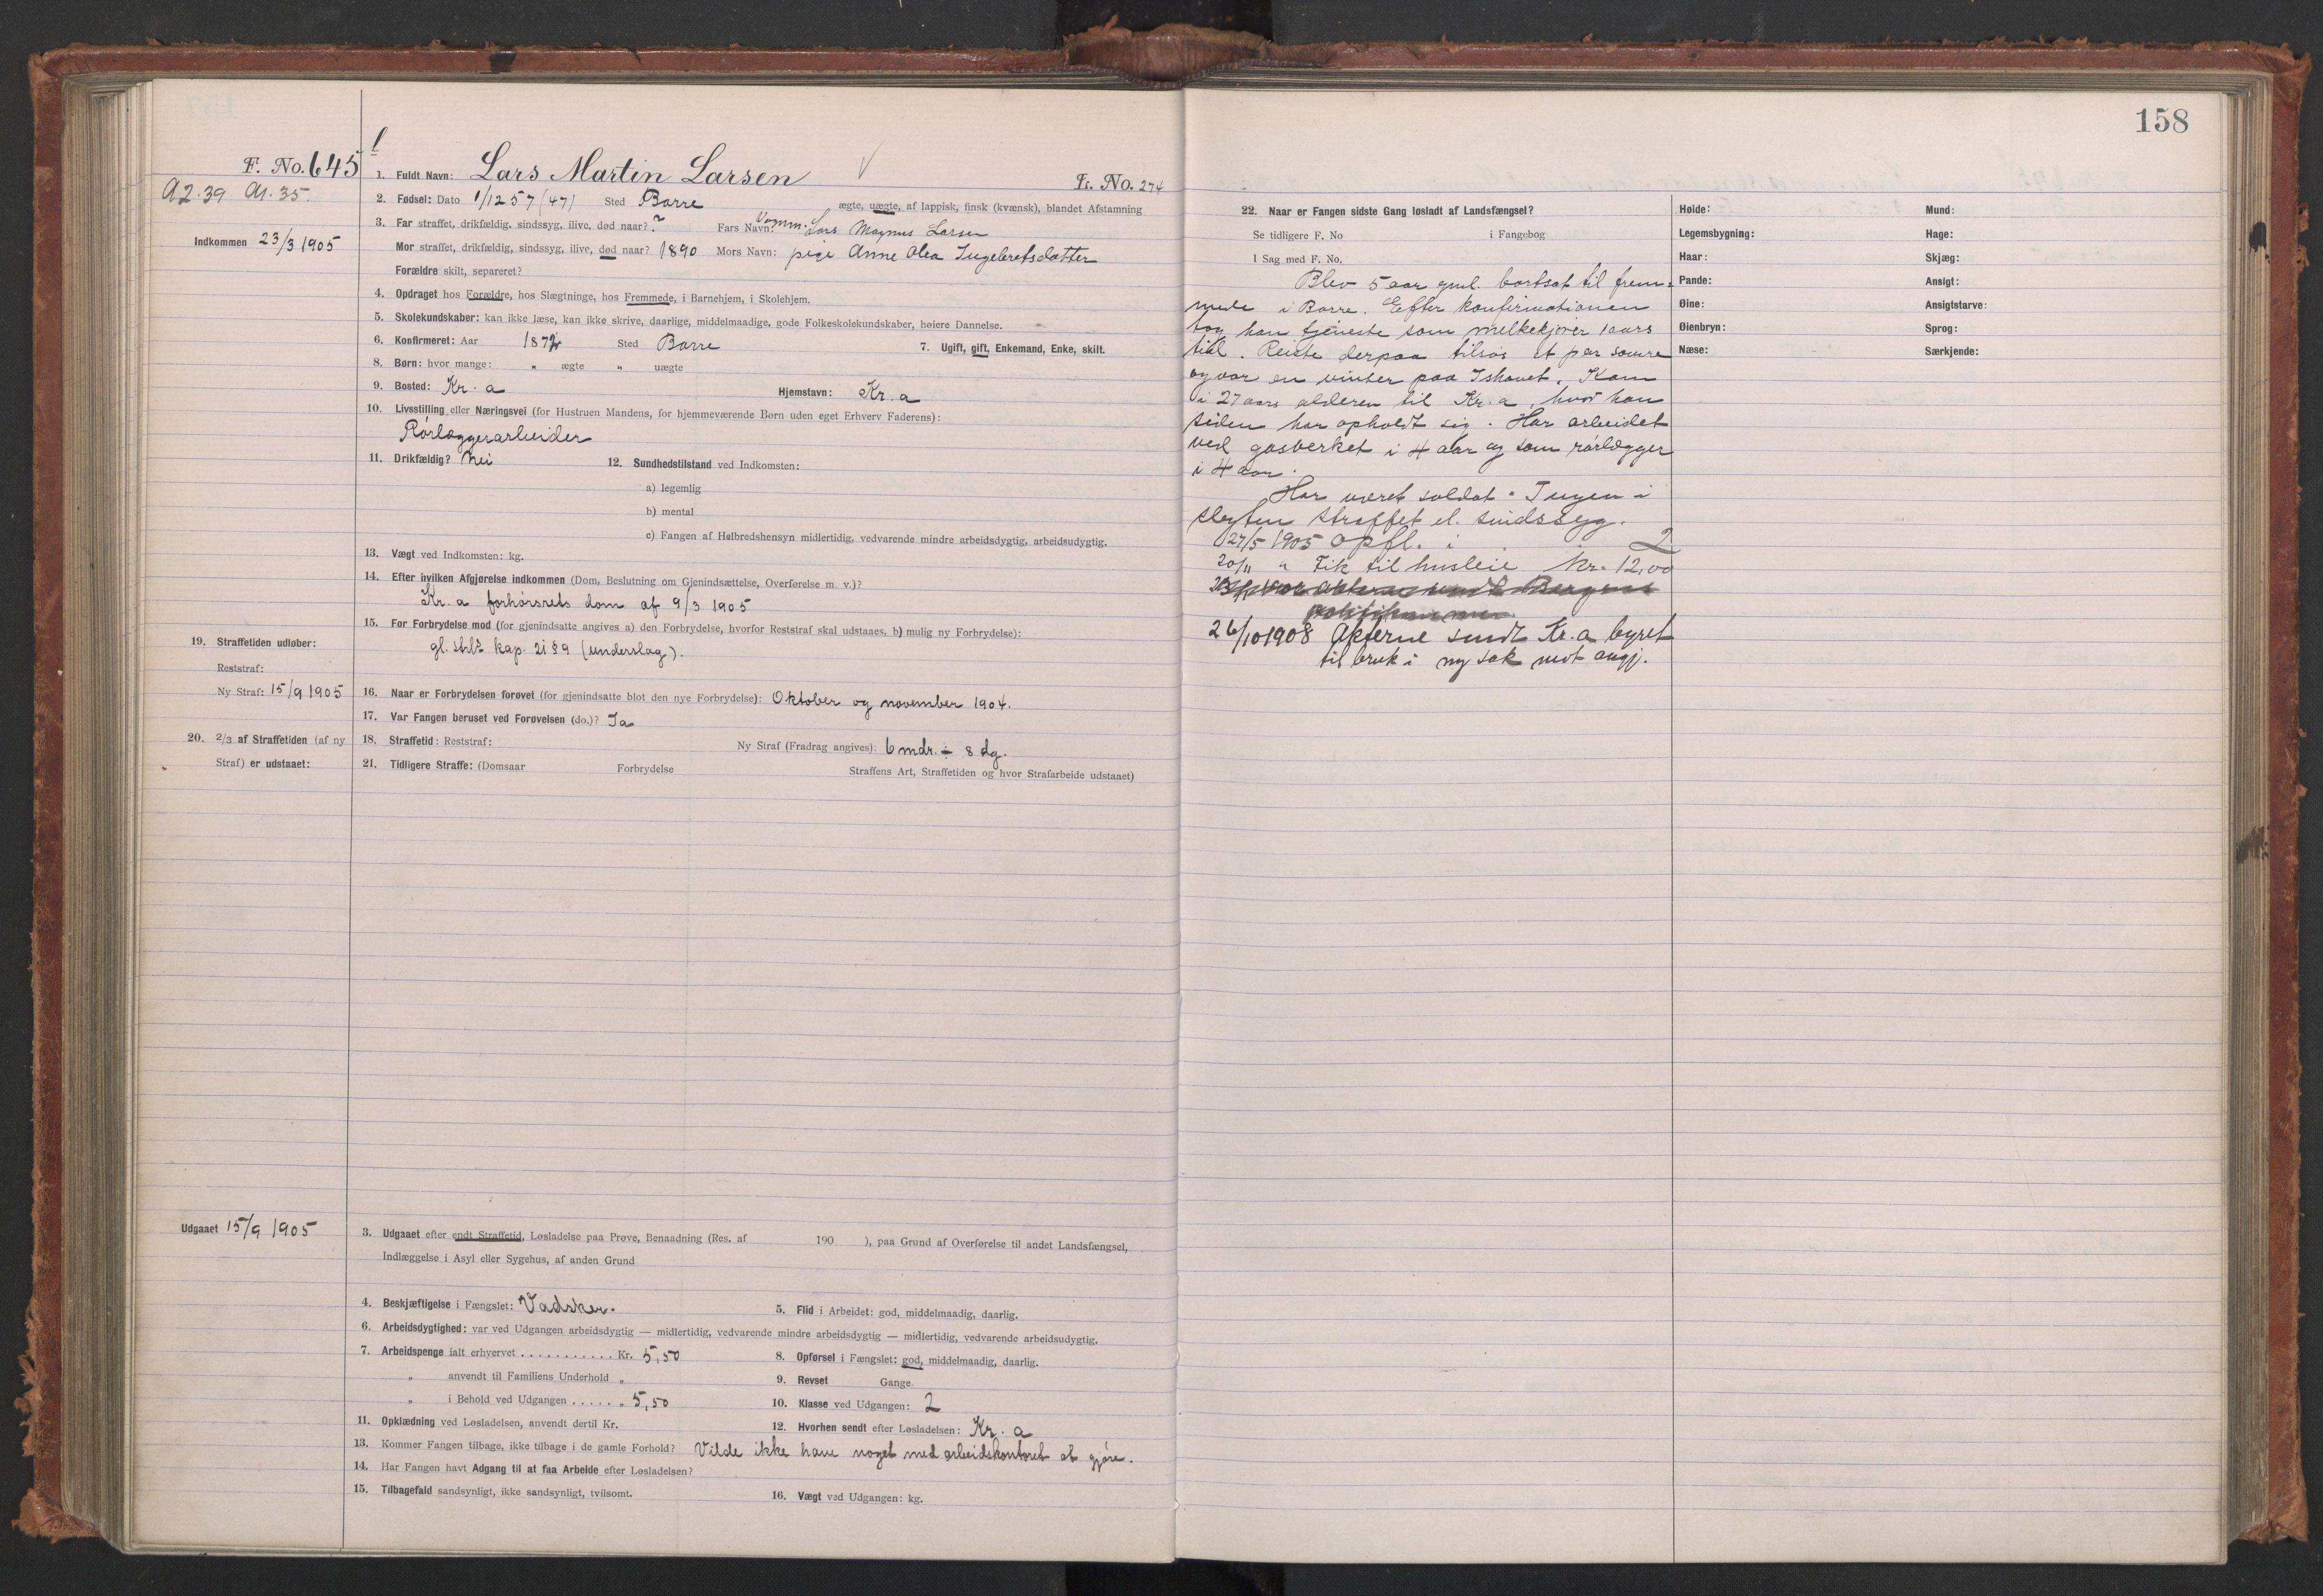 158
F. No. 645
1. Fuldt Navn: Lars Martin Larsen
L. No. 274
A2.39 A1.35.
2. Fødsel: Dato 1/12 57 (47) Sted Borre ægte, uægte, af lappisk, finsk (kvænsk), blandet Afstamning
3. Far straffet, drikfældig, sindssyg, ilive, død naar? ? Fars Navn: Lars Magnus Larsen
Indkommen 23/3 1905
Mor straffet, drikfældig, sindssyg, ilive, død naar? 1890 Mors Navn: pige Anne Olea Ingebretsdatter
Forældre skilt, separeret?
4. Opdraget hos Forældre, hos Slægtninge, hos Fremmede, i Barnehjem, i Skolehjem.
5. Skolekundskaber: kan ikke læse, kan ikke skrive, daarlige, middelmaadige, gode Folkeskolekundskaber, høiere Dannelse.
6. Konfirmeret: Aar 1872 Sted Borre 7. Ugift, gift, Enkemand, Enke, skilt.
8. Børn: hvor mange: " ægte " uægte
9. Bosted: Kr.a Hjemstavn: Kr.a
10. Livsstilling eller Næringsvei (for Hustruen Mandens, for hjemmeværende Børn uden eget Erhverv Faderens):
Rørlæggerarbeider
11. Drikfældig? Nei 12. Sundhedstilstand ved Indkomsten:
a) legemlig
b) mental
c) Fangen af Helbredshensyn midlertidig, vedvarende mindre arbeidsdygtig, arbeidsudygtig.
13. Vægt ved Indkomsten: kg.
14. Efter hvilken Afgjørelse indkommen (Dom, Beslutning om Gjenindsættelse, Overførelse m. v.)?
Kr.a forhørsrets dom af 9/3 1905
15. For Forbrydelse mod (for gjenindsatte angives a) den Forbrydelse, hvorfor Reststraf skal udstaaes, b) mulig ny Forbrydelse):
19. Straffetiden udløber:
gl. strl. kap. 21 § 9 (underslag).
Reststraf:
Ny Straf: 15/9 1905
16. Naar er Forbrydelsen forøvet (for gjenindsatte blot den nye Forbrydelse): Oktober og november 1904.
17. Var Fangen beruset ved Forøvelsen (do.)? Ja
20. 2/3 af Straffetiden (af ny
18. Straffetid: Reststraf: Ny Straf (Fradrag angives): 6 mdr. ÷ 8 dg.
Straf) er udstaaet:
21. Tidligere Straffe: (Domsaar Forbrydelse Straffens Art, Straffetiden og hvor Strafarbeide udstaaet)
Udgaaet 15/9 1905
3. Udgaaet efter endt Straffetid, Løsladelse paa Prøve, Benaadning (Res. af 190 ), paa Grund af Overførelse til andet Landsfængsel,
Indlæggelse i Asyl eller Sygehus, af anden Grund
4. Beskjæftigelse i Fængslet: Vadsker. 5. Flid i Arbeidet: god, middelmaadig, daarlig.
6. Arbeidsdygtighed: var ved Udgangen arbeidsdygtig — midlertidig, vedvarende mindre arbeidsdygtig — midlertidig, vedvarende arbeidsudygtig.
7. Arbeidspenge ialt erhvervet ........... Kr. 5,50 8. Opførsel i Fængslet: god, middelmaadig, daarlig.
" anvendt til Familiens Underhold " 9. Revset Gange
" i Behold ved Udgangen ..... " 5,50 10. Klasse ved Udgangen: 2
11. Opklædning ved Løsladelsen, anvendt dertil Kr. 12. Hvorhen sendt efter Løsladelsen: Kr.a
13. Kommer Fangen tilbage, ikke tilbage i de gamle Forhold? Vilde ikke have noget med arbeidskontoret at gjøre.
14. Har Fangen havt Adgang til at faa Arbeide efter Løsladelsen?
15. Tilbagefald sandsynligt, ikke sandsynligt, tvilsomt. 16. Vægt ved Udgangen: kg.
22. Naar er Fangen sidste Gang løsladt af Landsfængsel?
Se tidligere F. No i Fangebog
I Sag med F. No.
Blev 5 aar gml. bortsat til frem-
mede i Borre. Efter konfirmationen
tog han tjeneste som melkekjører 1 aars
tid. Reiste derpaa tilsøs et par somre
og var en vinter paa Ishavet. Kom
i 27 aars alderen til Kr.a, hvor han
siden har opholdt sig. Har arbeidet
ved gasverket i 4 aar og som rørlægger
i 4 aar.
Har været soldat. Ingen i
slegten straffet el. sindssyg.
27/5 1905 opfl. i 2
20/11 " Fik til husleie Kr. 12,00
26/10 1908 Akterne sendt Kr.a byret
til bruk i ny sak mot angj.
Høide: Mund:
Legemsbygning: Hage:
Haar: Skjæg:
Pande: Ansigt:
Øine: Ansigtsfarve:
Øienbryn: Sprog:
Næse: Særkjende: